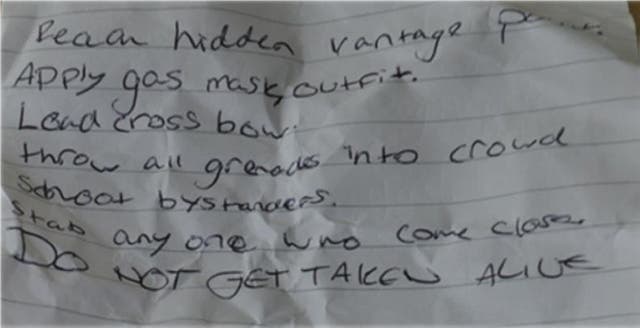 Reach hidden vantage
APPly gas mask, outfit.
Load cross bow.
throw all grenads into crowd
bystanders.
Stab any one who come close.
DO NOT GET TAKEN ALIVE